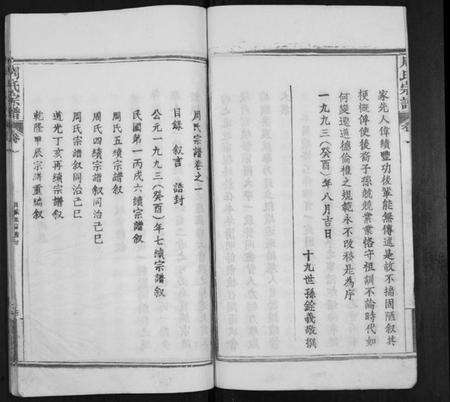 周氏宗譜 卷一
家先人偉績豐功後輩能無傳遠是故不揣固陋叙其
梗概俾使後裔子孫兢兢業業恪守祖訓不論時代如
何變遷道德倫槽之規範永不改移是為序
一九九三(癸酉)年八月吉日
十九世孫銓義敬撰
周氏宗譜卷之一
目録 叙言 誥封
公元一九九三(癸酉)年七續宗譜叙
民國第一丙戌六續宗譜叙
周氏五續宗譜叙
周氏四續宗譜叙同治己巳
周氏宗譜叙同治己巳
道光丁亥再續宗譜叙
乾隆甲辰宗譜重編叙
周氏宗譜 卷一